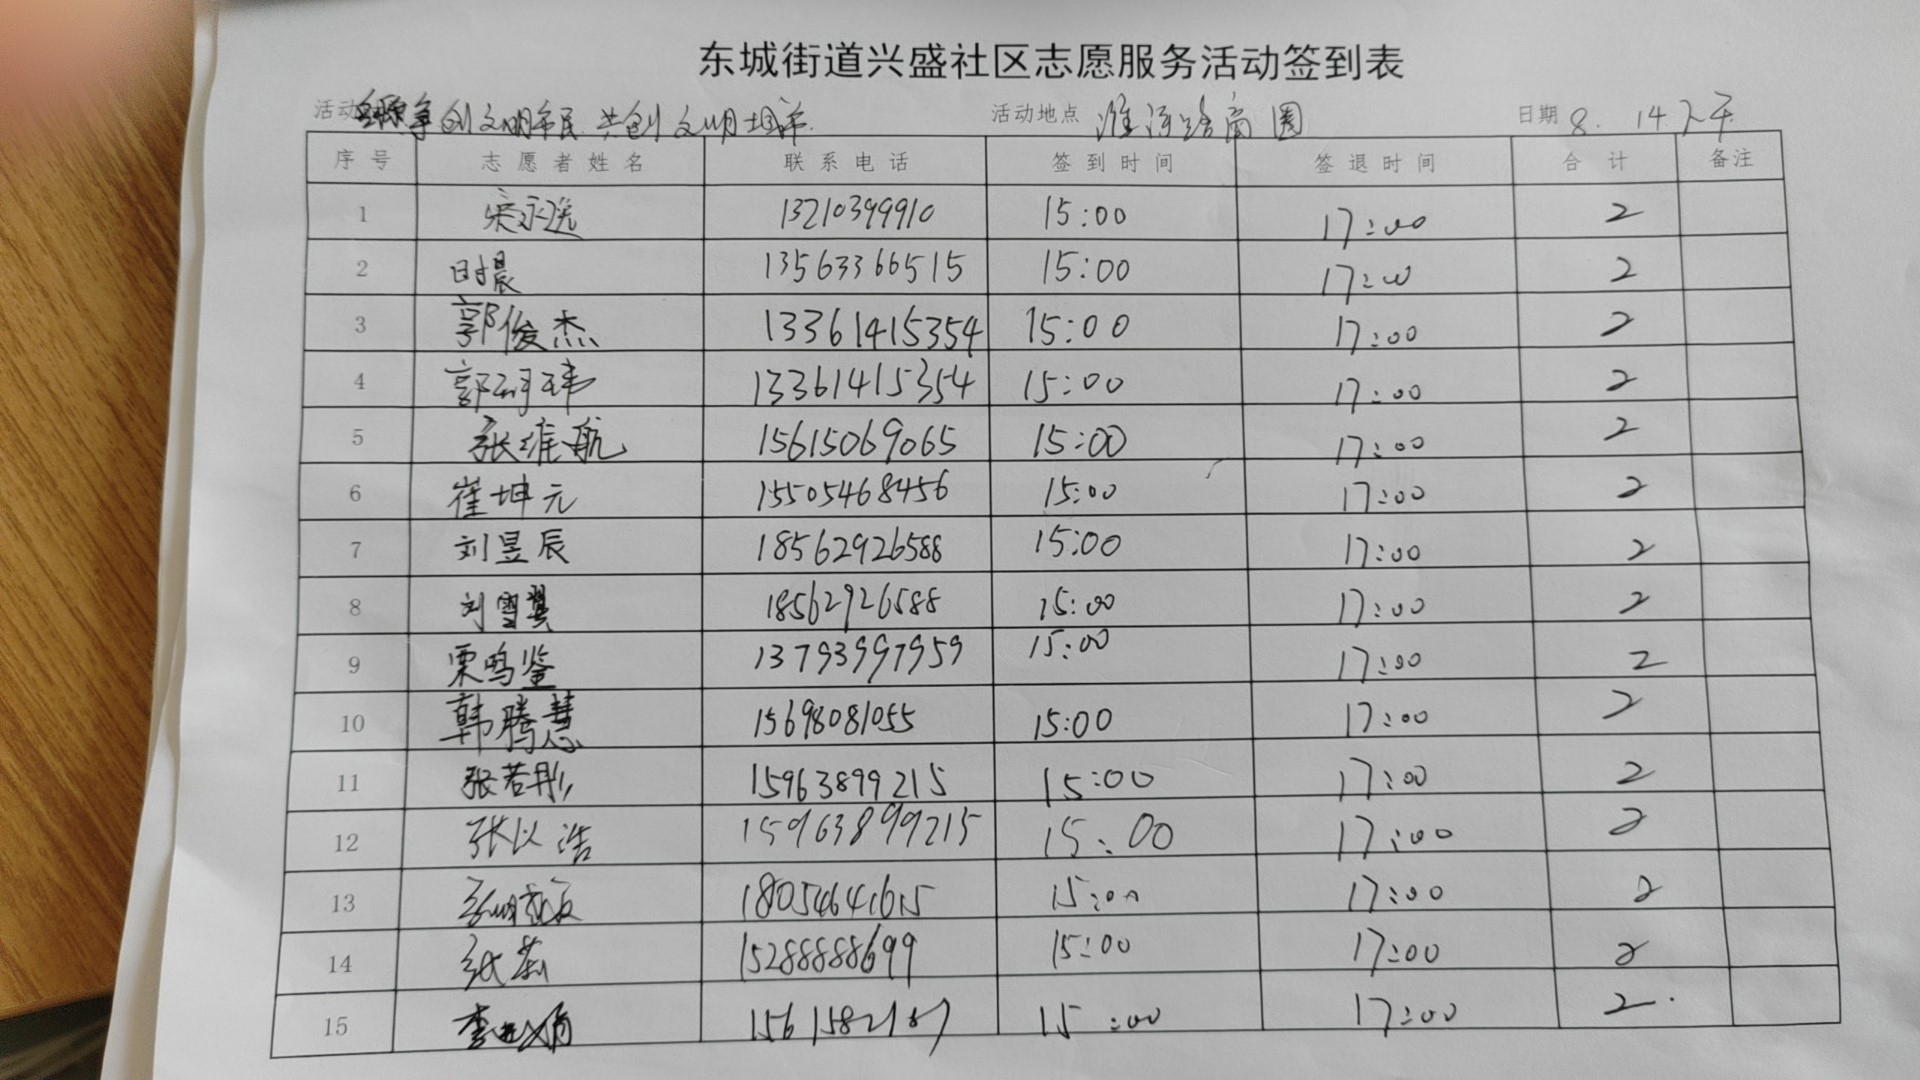 东城街道兴盛社区志愿服务活动签到表
活动 争创文明市民 共创文明城市 活动地点 淮河路商圈 日期 8.14下午
序号 志愿者姓名 联系电话 签到时间 签退时间 合计 备注
1 13210399910 15:00 17:00 2
2 时晨 13563366515 15:00 17:00 2
3 郭俊杰 13361415354 15:00 17:00 2
4 13361415354 15:00 17:00 2
5 张维航 15615069065 15:00 17:00 2
6 崔坤元 15505468456 15:00 17:00 2
7 刘昱辰 18562926588 15:00 17:00 2
8 刘雪翼 18562926588 15:00 17:00 2
9 栗鸣鉴 13793997959 15:00 17:00 2
10 韩腾慧 15698081055 15:00 17:00 2
11 张若彤 15963899215 15:00 17:00 2
12 张以浩 15963899215 15:00 17:00 2
13 18054641615 15:00 17:00 2
14 15288888699 15:00 17:00 2
15 15:00 17:00 2